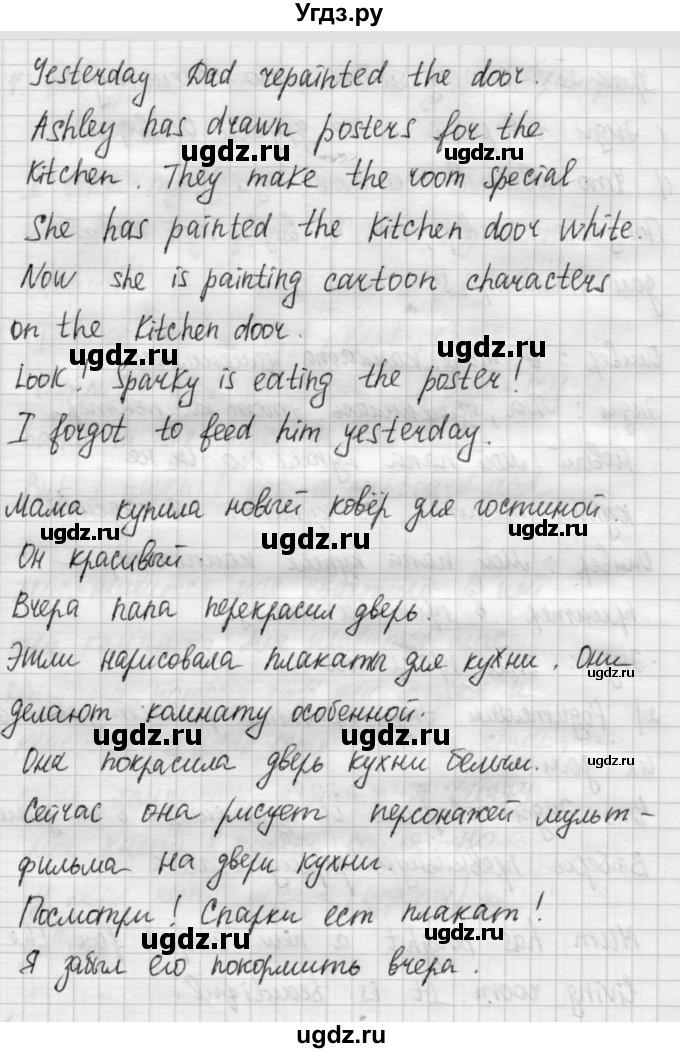 Угдз.ру
Yesterday Dad repainted the door.
Ashley has drawn posters for the
ugdz.ru
Kitchen. They make the room special
ugdz.ru
She has painted the kitchen door white.
Now she is painting cartoon characters
ugdz.ru
on the Kitchen door.
ugdz.ru ugdz.ru
Look! Sparky is eating the poster!
I forgot to feed him yesterday.
Мама купила новый ковёр для гостиной.
ugdz.ru ugdz.ru ugdz.ru
Он красивый
Вчера папа перекрасил дверь.
ugdz.ru
Эшли нарисовала плакаты для кухни. Они
ugdz.ru
делают комнату особенной.
ugdz.ru ugdz.ru
Она покрасила дверь кухни белым.
ugdz.ru
Сейчас она рисует персонажей мульт-
ugdz.ru
фильма на двери кухни.
Посмотри! Спарки ест плакат!
ugdz.ru ugdz.ru
Я забыл его покормить вчера.
ugdz.ru